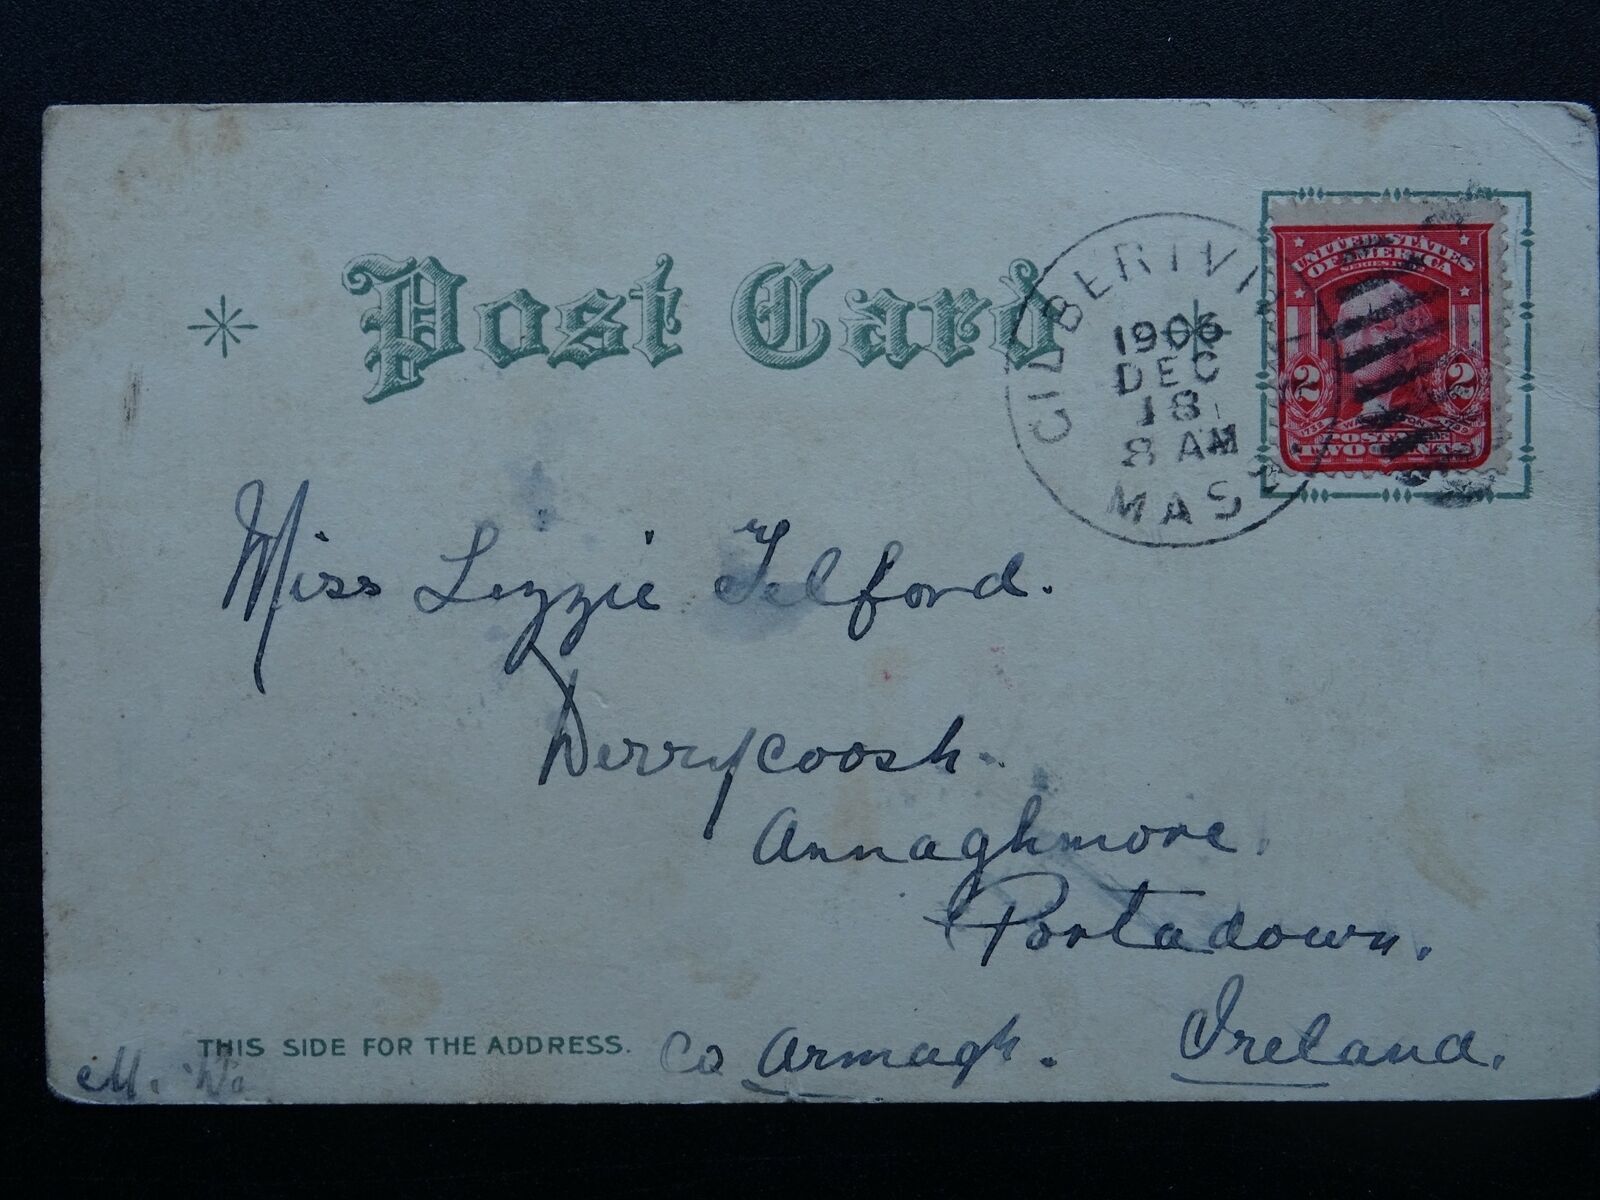 Post Card
GILBERTVI
1906
DEC
18
8 AM
MASS
UNITED STATES
OF AMERICA
2 2
1732 WASHINGTON 1799
POSTAGE
TWO CENTS
Miss Lizzie Telford.
Derrycoosh.
Annaghmore.
Portadown.
Co Armagh. Ireland.
THIS SIDE FOR THE ADDRESS.